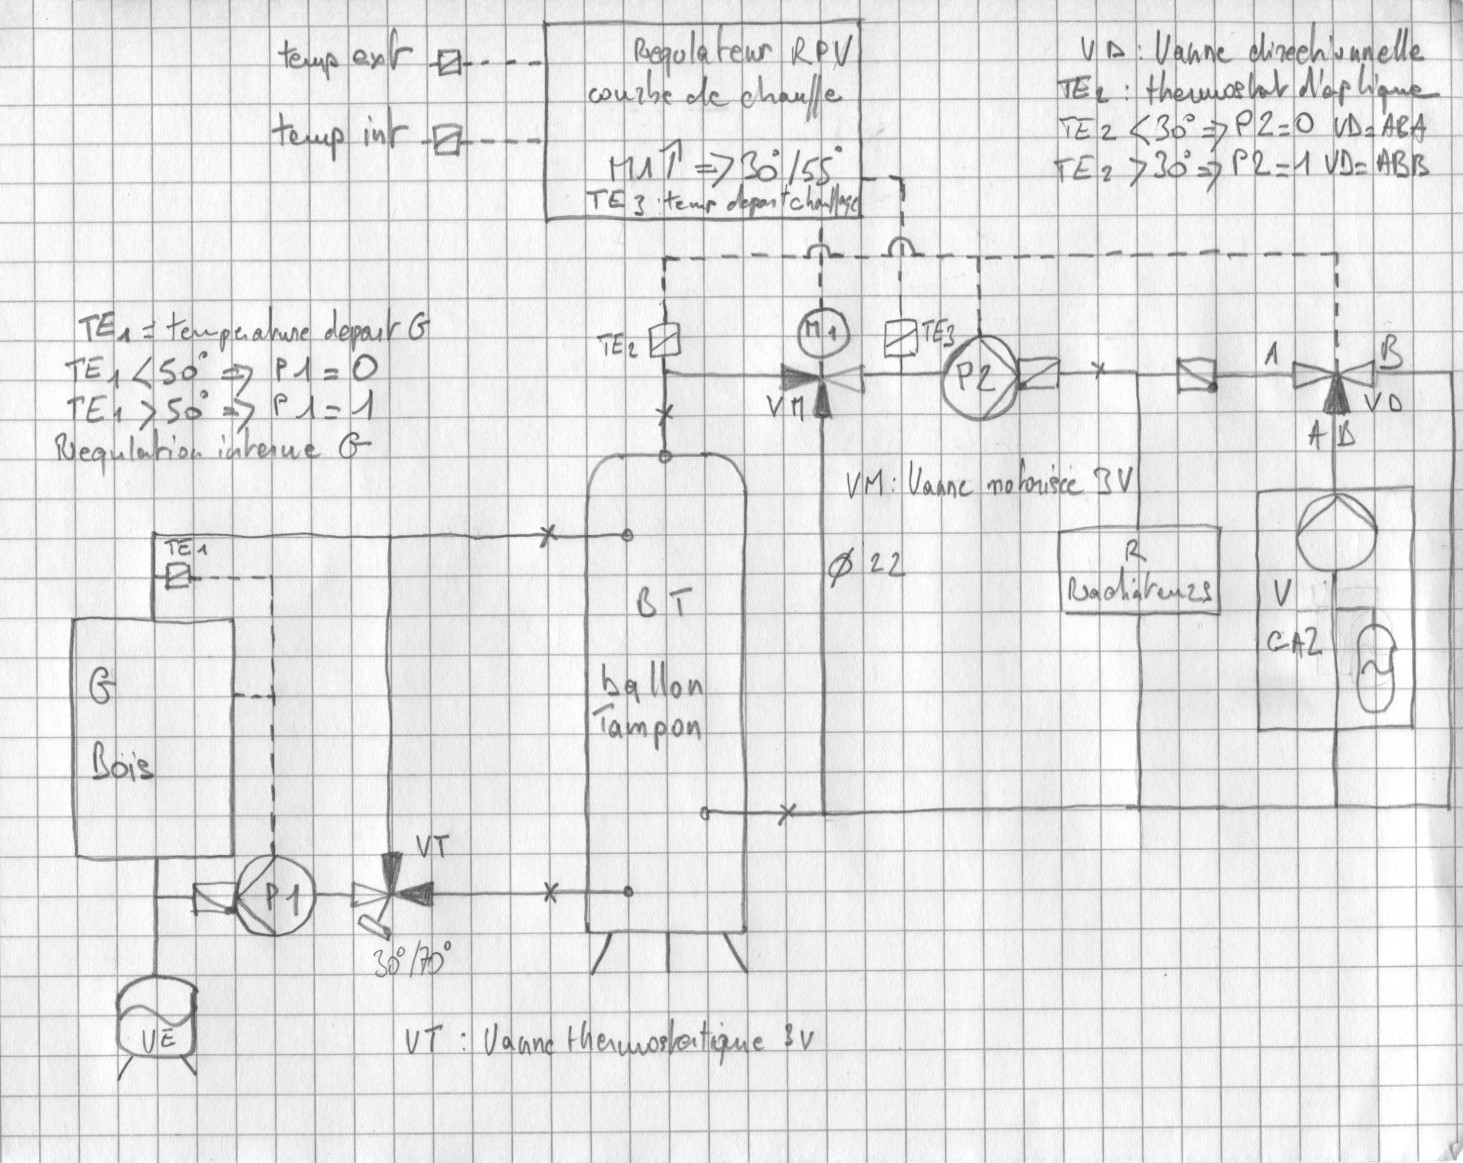 temp ext
temp int
Regulateur RPV
courbe de chauffe
M1↑ => 30°/55°
TE3 : temp depart chauffage
VD : Vanne directionnelle
TE2 : thermostat d'aplique
TE2 < 30° => P2=0 VD=ABA
TE2 > 30° => P2=1 VD=ABB
TE1 = temperature depart G
TE1 < 50° => P1=0
TE1 > 50° => P1=1
Regulation interne G
TE2
M1
TE3
VM
P2
A
B
VD
AB
VM : Vanne motorisée 3V
TE1
Ø 22
R
Radiateurs
V
GAZ
BT
ballon
Tampon
G
Bois
VT
P1
30°/70°
VE
VT : Vanne thermostatique 3V